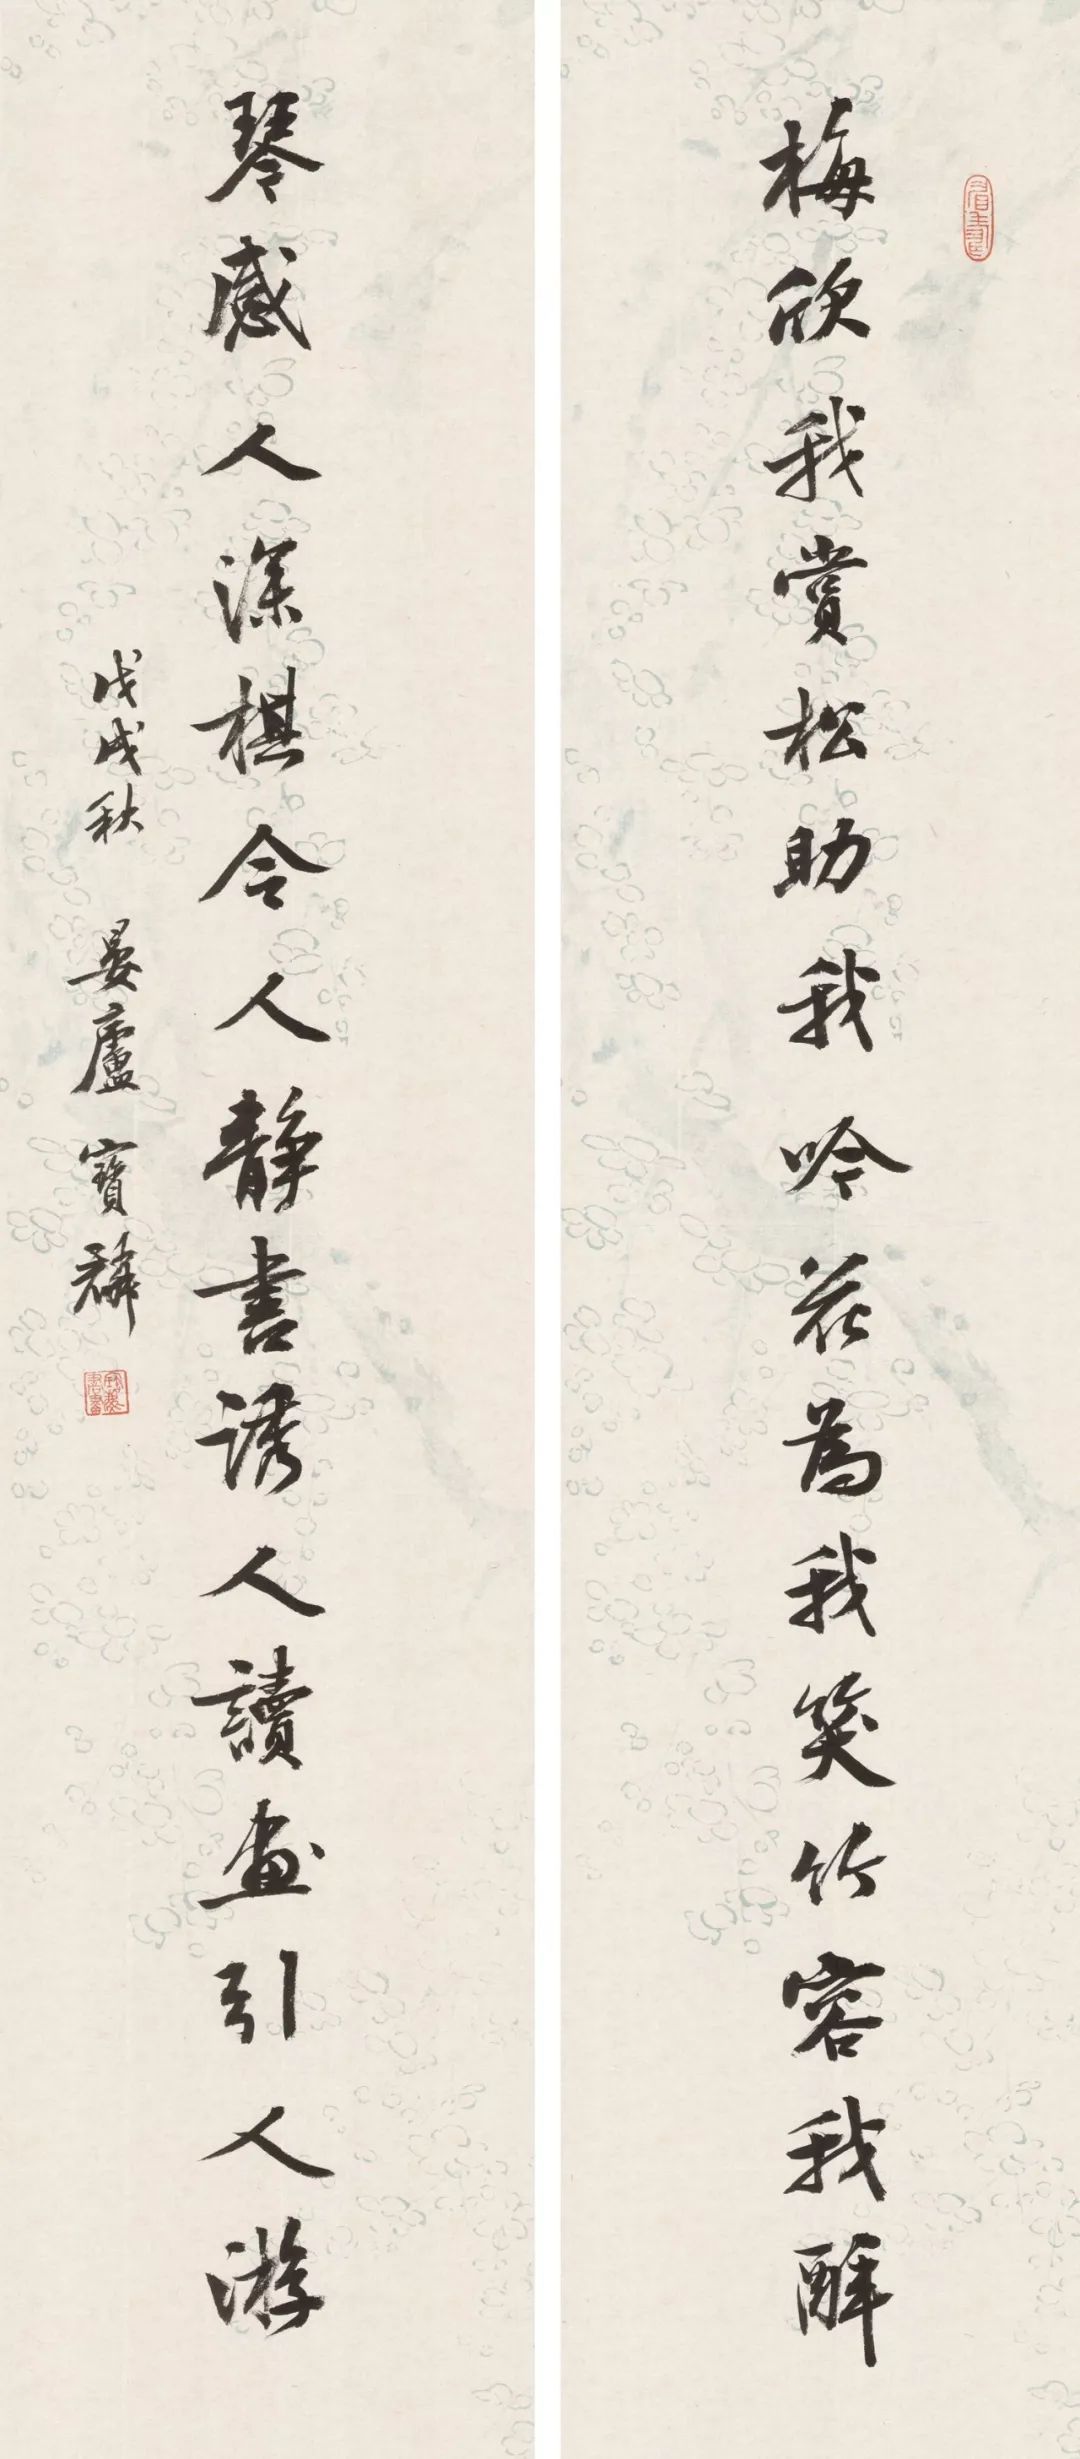 梅欣我賞松助我吟花為我笑竹容我醉
琴感人深棋令人静書誘人讀畫引人游
戊戌秋 晏廬寶麟
眉壽